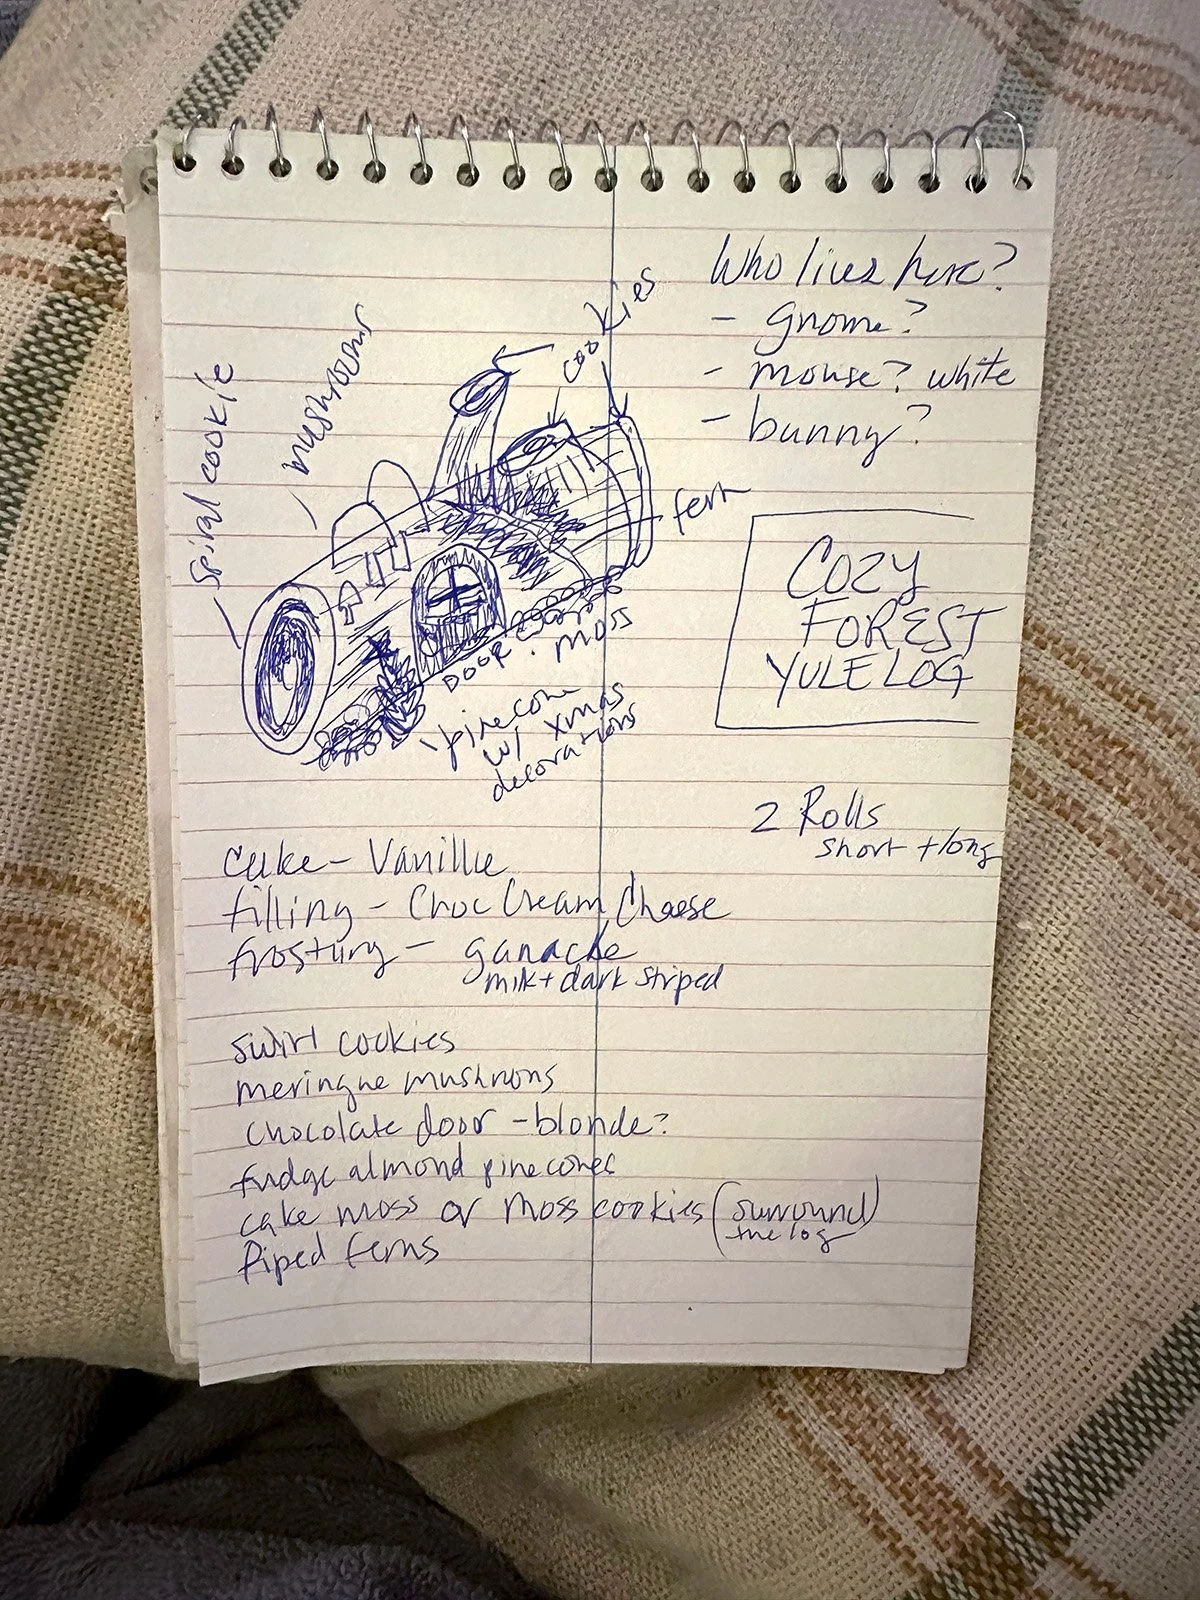 Who lives here?
- gnome?
- mouse? white
- bunny?
cookies
mushrooms
Spiral cookie
fern
COZY
FOREST
YULE LOG
DOOR
moss
pinecone
w/ xmas
decorations
2 Rolls
short + long
cake - Vanilla
filling - Choc Cream Cheese
frosting - ganache
milk + dark striped
swirl cookies
meringue mushrooms
chocolate door - blonde?
fudge almond pinecones
cake moss or moss cookies (surround
the log)
Piped ferns